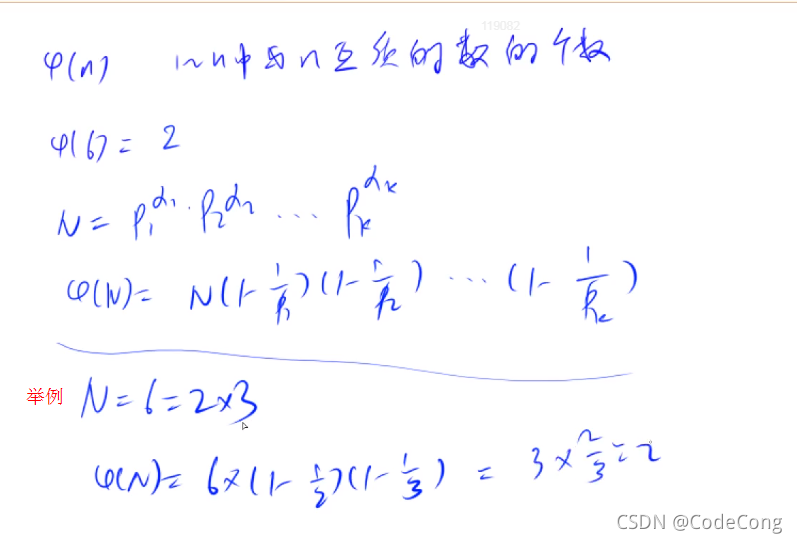 119082
φ(n) 1~n中与n互质的数的个数
φ(6) = 2
N = P₁^α₁ · P₂^α₂ ... Pₖ^αₖ
φ(N) = N(1-1/P₁)(1-1/P₂) ... (1-1/Pₖ)
举例 N = 6 = 2×3
φ(N) = 6×(1-1/2)(1-1/3) = 3×2/3 = 2
CSDN @CodeCong